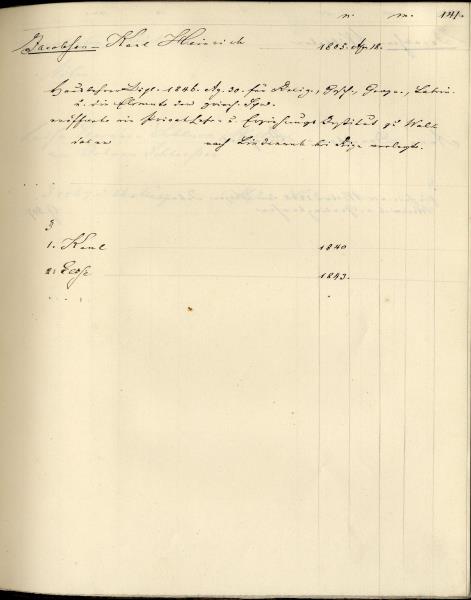 n. m. 141.
Jacobsen - Karl Heinrich 1805. Ap. 18.
Hauslehrer Dipl. 1846. Ag. 30. für Relig., Gesch., Geogr., Latein
u. die Elemente der griech. Spr.
eröffnete ein Privat Lehr- u. Erziehungs Institut zu
nach Lindenruh bei Riga verlegte.
1. Karl 1840
2. 1843.